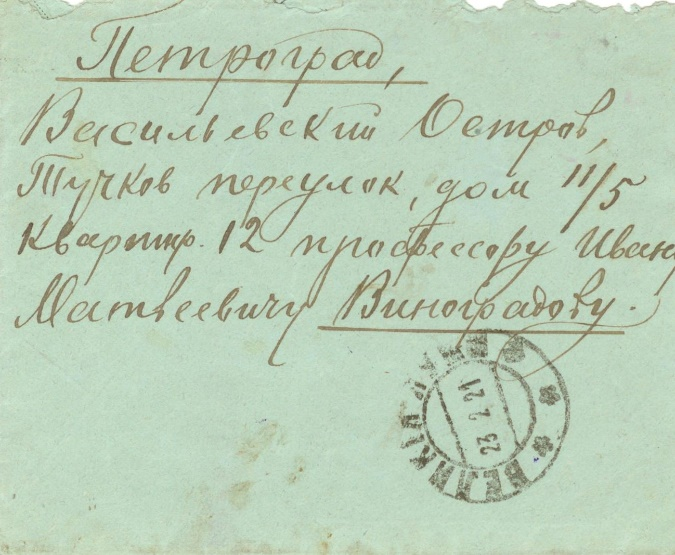 Петроград,
Васильевский Остров,
Тучков переулок, дом 11/5
Квартир. 12 профессору Ивану
Матвеевичу Виноградову.
23 2 21
ВЕЛИКІЯ